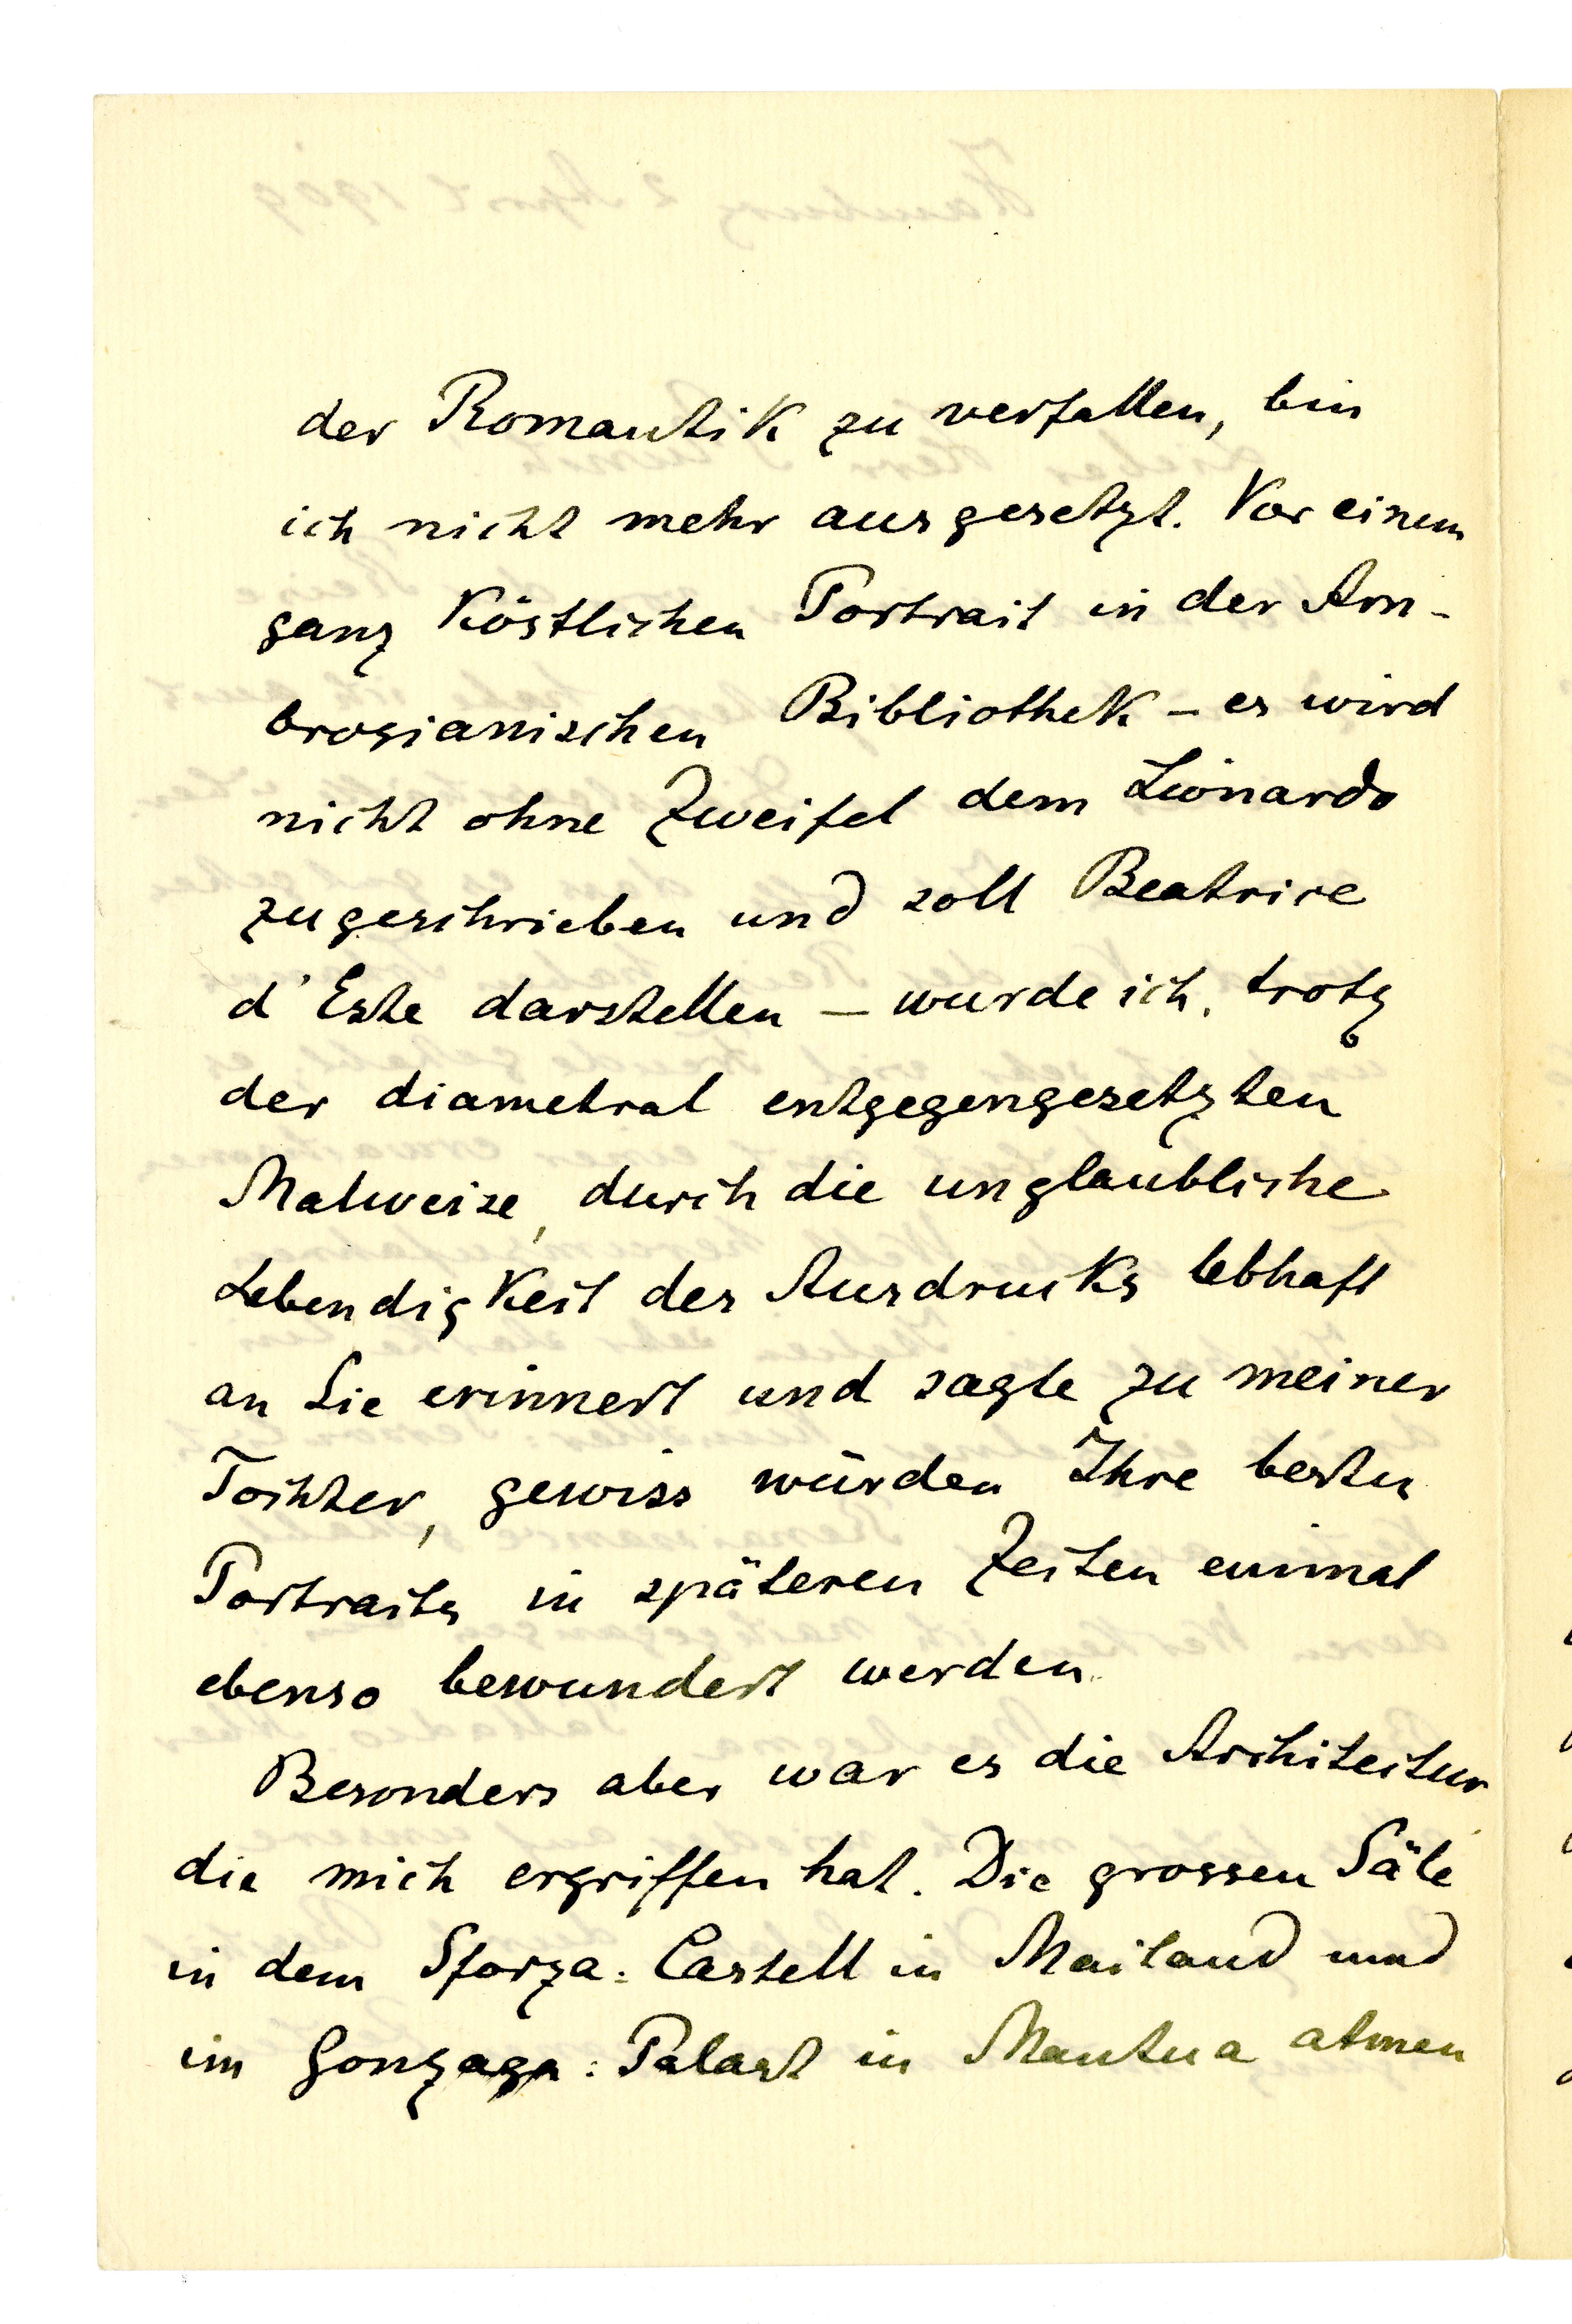 der Romantik zu verfallen, bin
ich nicht mehr ausgesetzt. Vor einem
ganz köstlichen Portrait in der Am-
brosianischen Bibliothek – es wird
nicht ohne Zweifel dem Lionardo
zugeschrieben und soll Beatrice
d'Este darstellen – wurde ich, trotz
der diametral entgegengesetzten
Malweise, durch die unglaubliche
Lebendigkeit des Ausdrucks lebhaft
an Sie erinnert und sagte zu meiner
Tochter, gewiss würden Ihre besten
Portraits in späteren Zeiten einmal
ebenso bewundert werden.
Besonders aber war es die Architectur
die mich ergriffen hat. Die grossen Säle
in dem Sforza-Castell in Mailand und
im Gonzaga-Palast in Mantua atmen